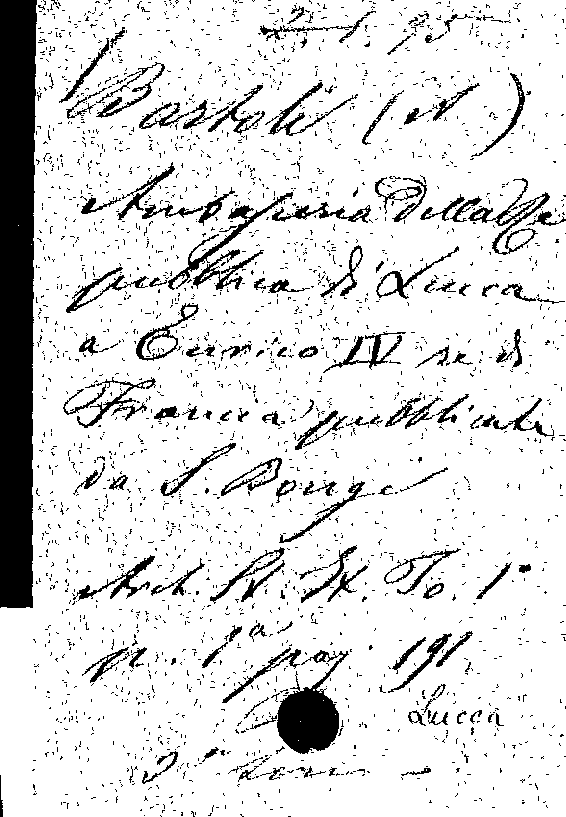 Bartoli (A)
Ambasceria della Re
pubblica di Lucca
a Enrico IV re di
Francia pubblicata
da S. Bongi
Arch. St. It. To. 1°
p. 1ª pag. 191
Lucca